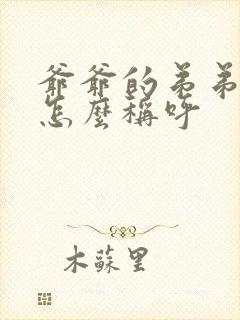 爺爺的弟弟
怎麼稱呼
木蘇里